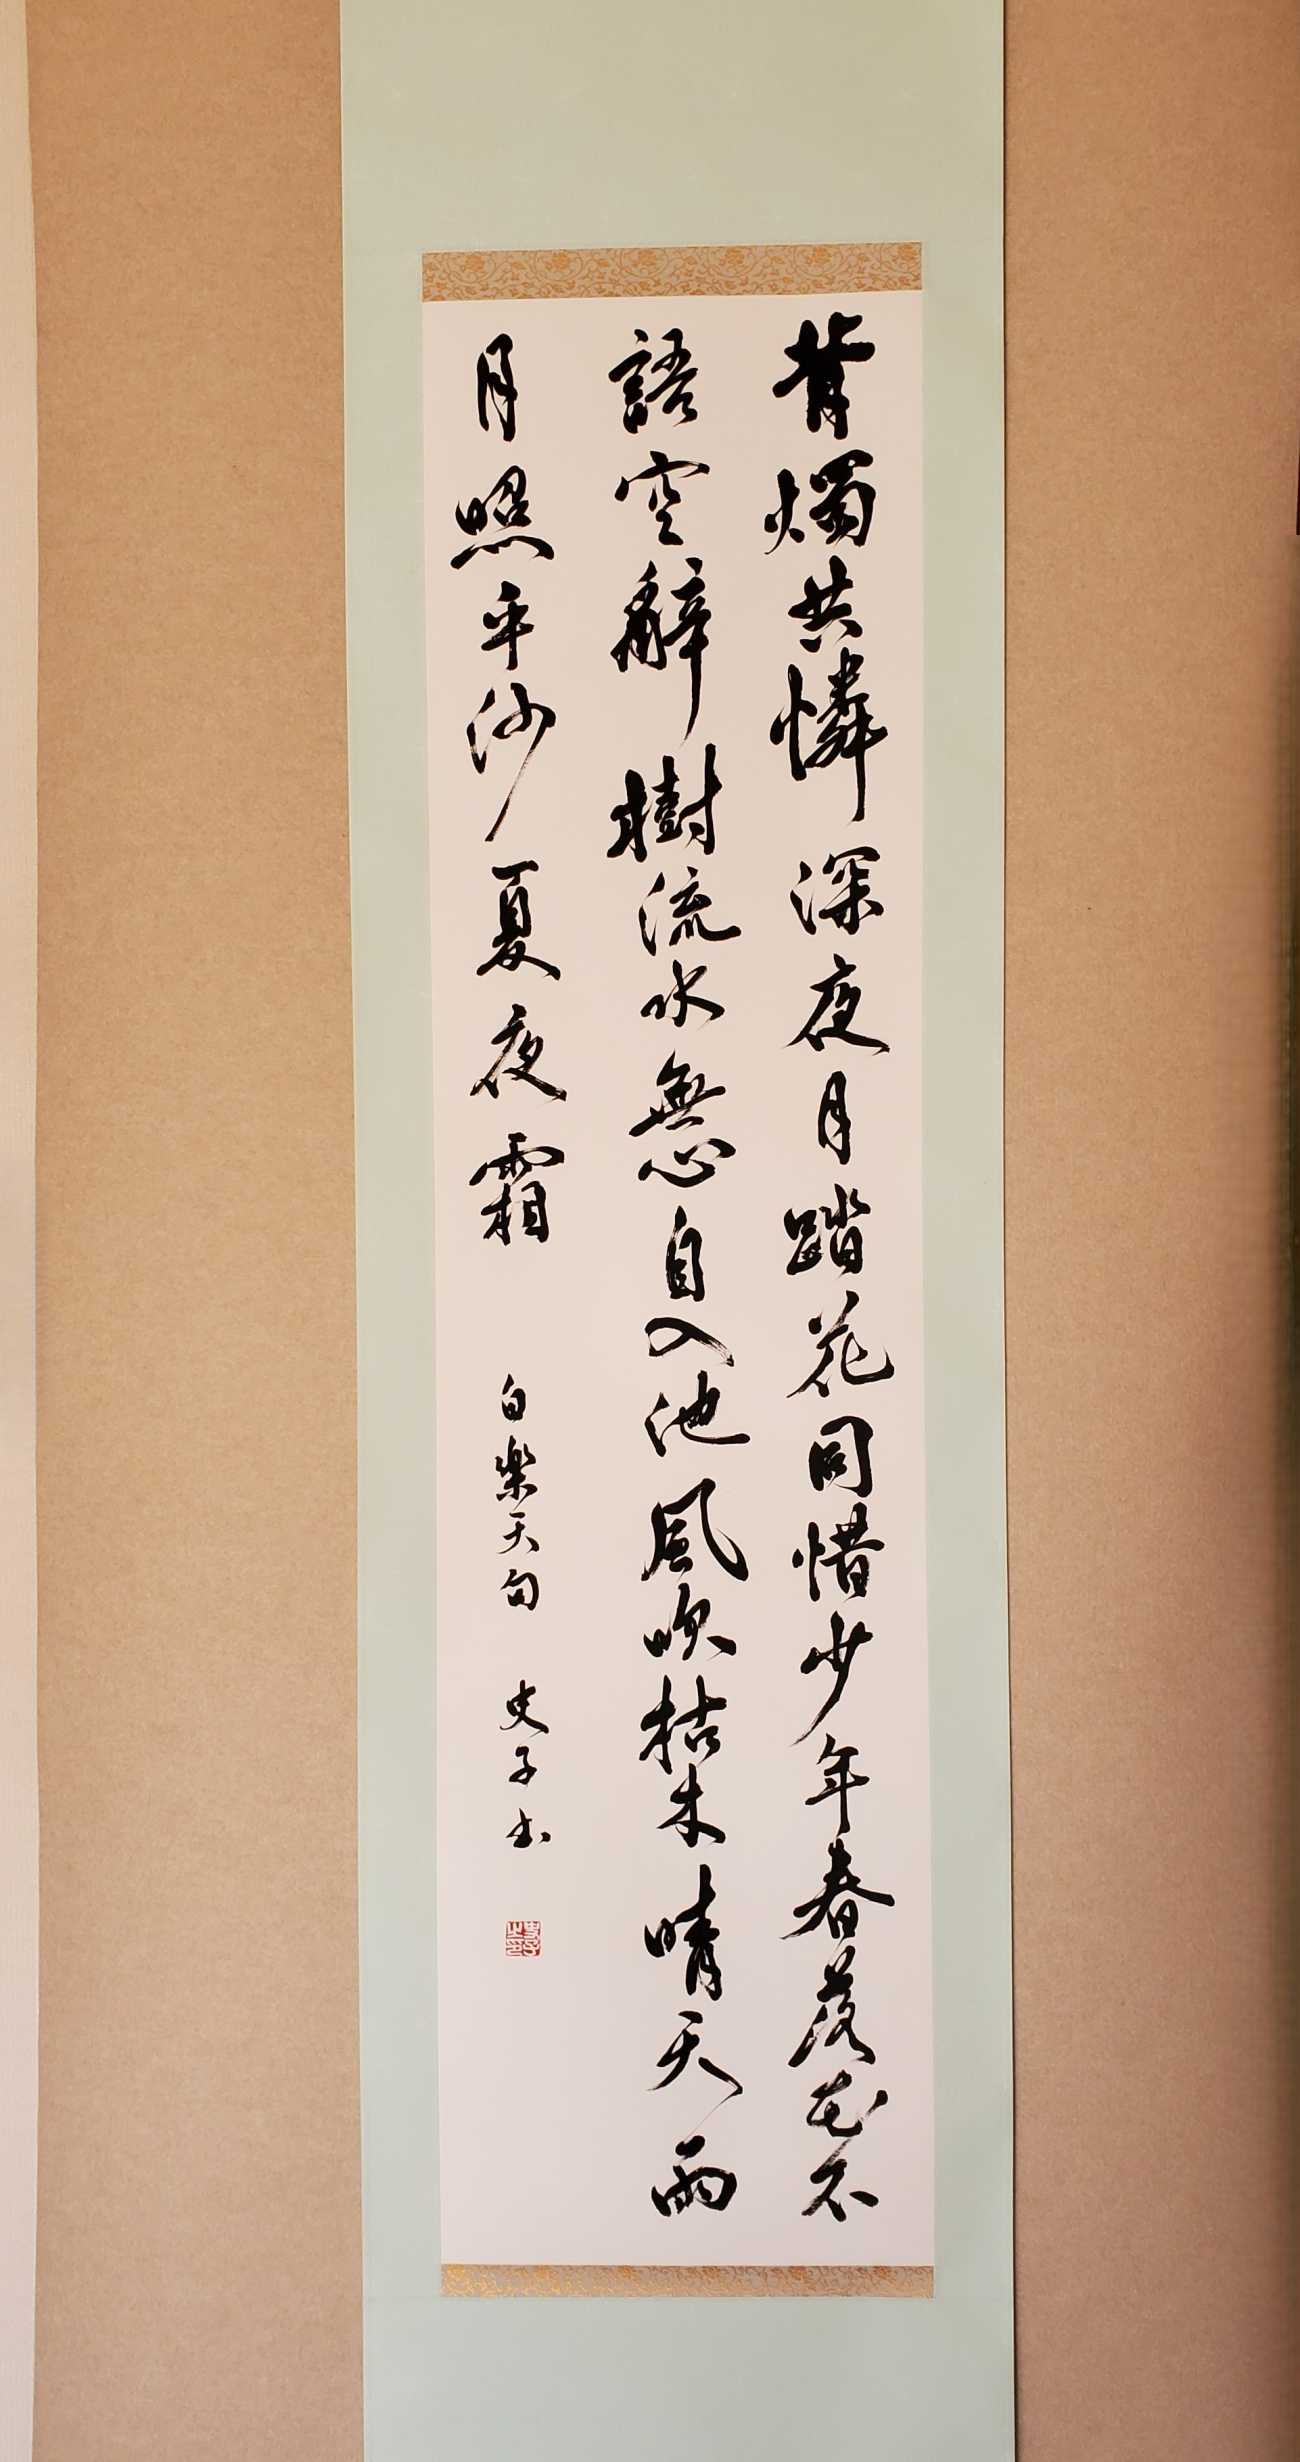 背燭共憐深夜月踏花同惜少年春落花不
語空辭樹流水無心自入池風吹枯木晴天雨
月照平沙夏夜霜
白楽天句 史子書
史子之印